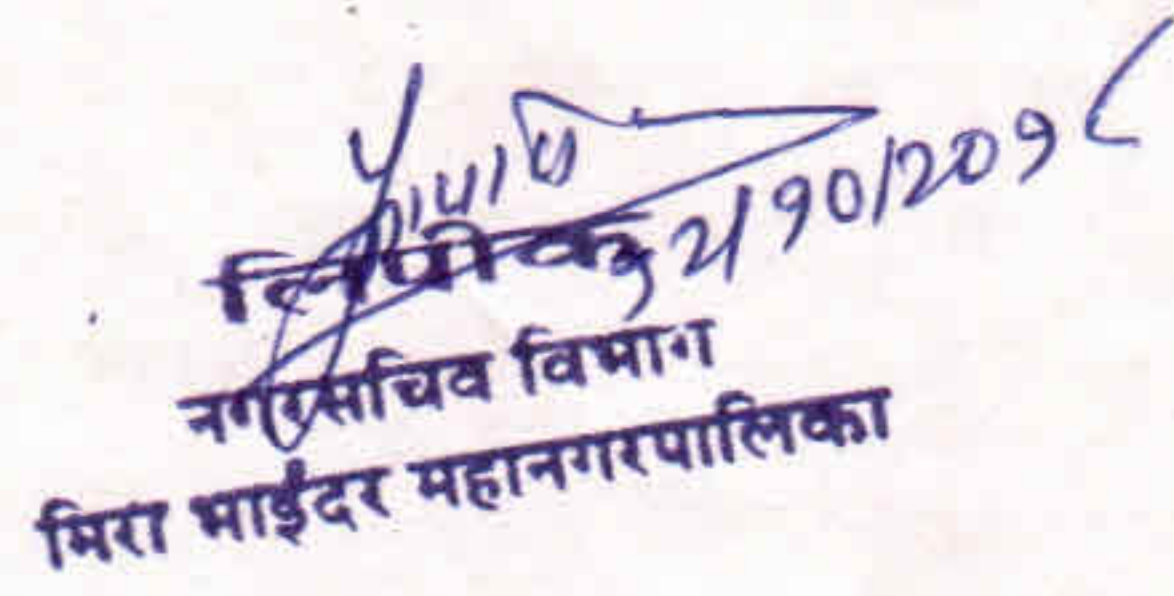 २/१०/२०१८
लिपीक
नगरसचिव विभाग
मिरा भाईंदर महानगरपालिका